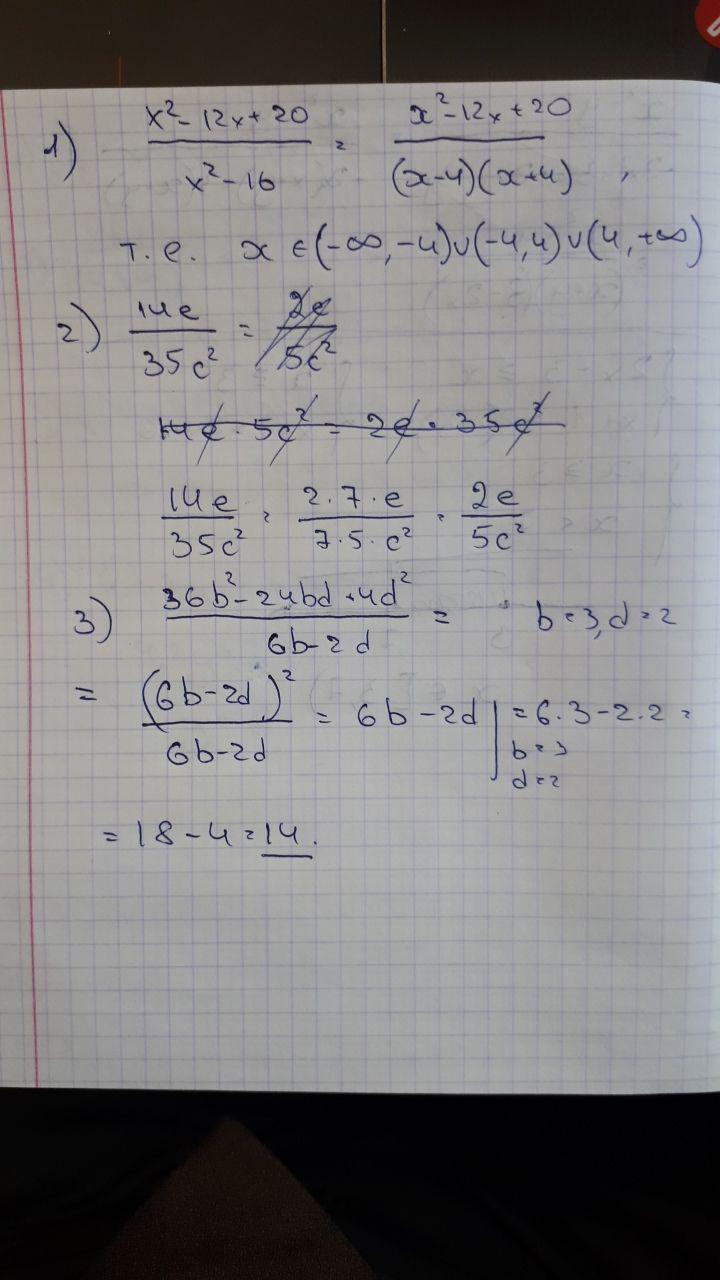 1) (x² - 12x + 20)/(x² - 16) = (x² - 12x + 20)/((x-4)(x+4)) ,
т.е. x ∈ (-∞, -4) ∪ (-4, 4) ∪ (4, +∞)
2) 14e/35c² = 2e/5c²
14e · 5c² = 2e · 35c²
14e/35c² = 2·7·e/7·5·c² = 2e/5c²
3) (36b² - 24bd + 4d²)/(6b - 2d) = b = 3, d = 2
= (6b - 2d)²/(6b - 2d) = 6b - 2d | = 6·3 - 2·2 =
b = 3
d = 2
= 18 - 4 = 14.